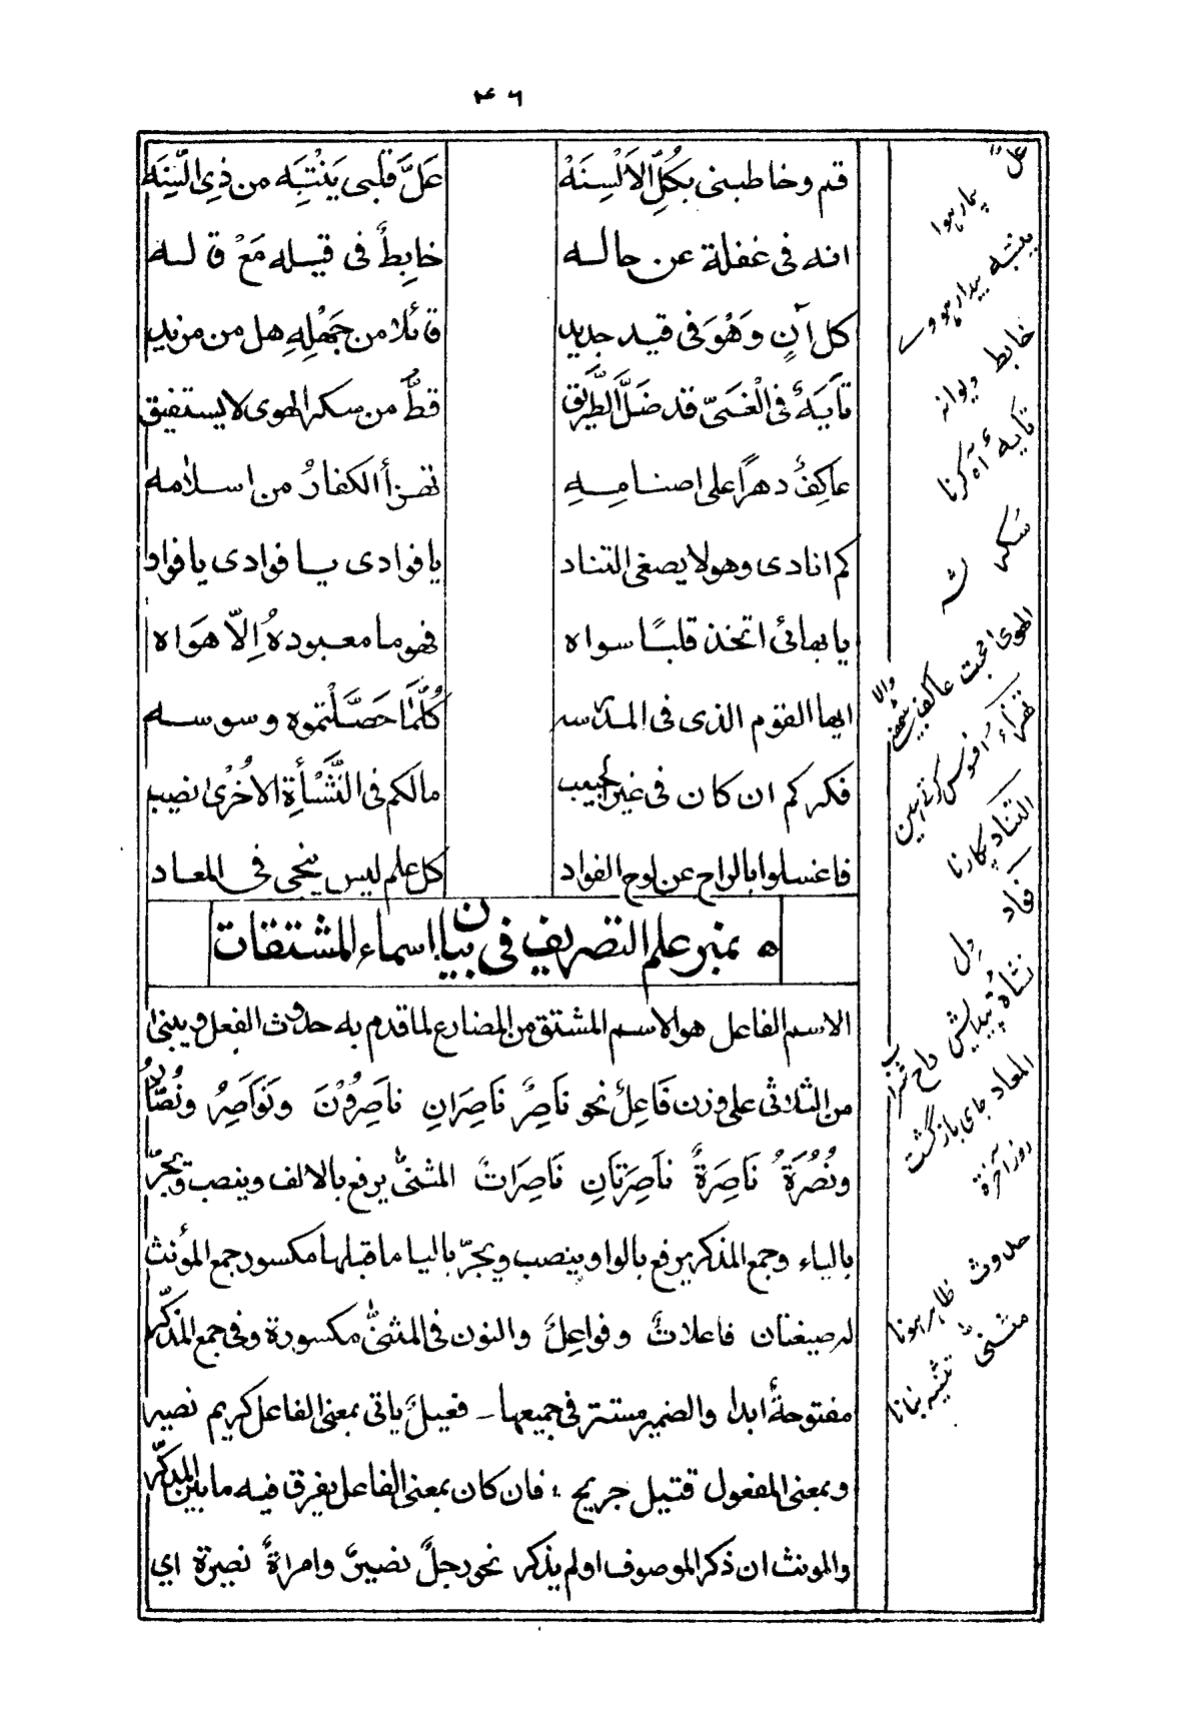 ۴۶
قم وخاطبنی بکُلِّ الاَلْسِنَهْ عَلَّ قلبی یَنْتَبِه من ذِی السِّنَه
انه فی غفلة عن حاله خابِطٌ فی قیله مَعْ قاله
کل آنٍ وَهْوَ فی قید جدید قائلا من جَهْلِهِ هل من مزید
تآیَهٌ فی الْغَیّ قد ضَلَّ الطَّرِیق قطُّ من سکر الهوی لا یستفیق
عاکِفٌ دهراً علی اصنامِهِ تهزأ الکفارُ من اسلامه
کم انادی وهو لا یصغی التناد یا فوادی یا فوادی یا فواد
یا بهائی اتخذ قلبًا سواه فهو ما معبودهُ اِلّا هَوَاه
ایها القوم الذی فی المدرسه کُلُّمَا حَصَّلْتموه وسوسه
فکرکم ان کان فی غیر الحبیب مالکم فی النَّشْأَةِ الاُخْریٰ نصیب
فاغسلوا بالراح عن لوح الفواد کل علم لیس ینجی فی المعاد
۵ نمبر علم التصریف فی بیان اسماء المشتقات
الاسم الفاعل هو الاسم المشتق من المضارع لما قدم به حدوث الفعل ویبنی
من الثلاثی علی وزن فَاعِلٌ نحو نَاصِرٌ نَاصِرَانِ نَاصِرُوْنَ وَنَوَاصِرُ ونُصَّارٌ
ونُصُرَةُ نَاصِرَةٌ نَاصِرَتَانِ نَاصِرَاتٌ المثنیّٰ یرفع بالالف وینصب ویجرّ
بالیاء وجمع المذکر یرفع بالواو ینصب ویجرّ بالیا ما قبلها مکسور جمع المؤنث
له صیغتان فاعلاتٌ وفواعِلُ والنون فی المثنیّٰ مکسورة وفی جمع المذکّر
مفتوحةٌ ابدا والضمیر مستتر فی جمیعها ـ فعیلٌ یاتی بمعنی الفاعل کریم نصیر
وبمعنی المفعول قتیل جریح ؛ فان کان بمعنی الفاعل یفرق فیه ما بین المذکّر
والمونث ان ذکر الموصوف او لم یذکر نحو رجلٌ نصیرٌ وامراةٌ نصیرة اي
علّ
بیمار ہوا
ینتبه بیدار ہووے
خابط دیوانہ
تآیه آہ کرنا
سَکر
نشہ
الهوی محبت عاکف بیٹھنے والا
تهزاء افسوس کرتے ہین
التناد پکارنا
فواد
دل
نشاة پیدایش راح شراب
المعاد جای بازگشت
روز آخرة
حدوث ظاہر ہونا
مثنیّٰ تثنیہ بنانا